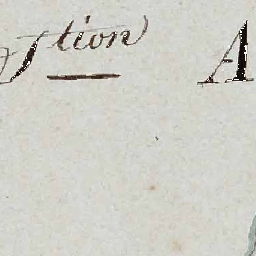 stion A